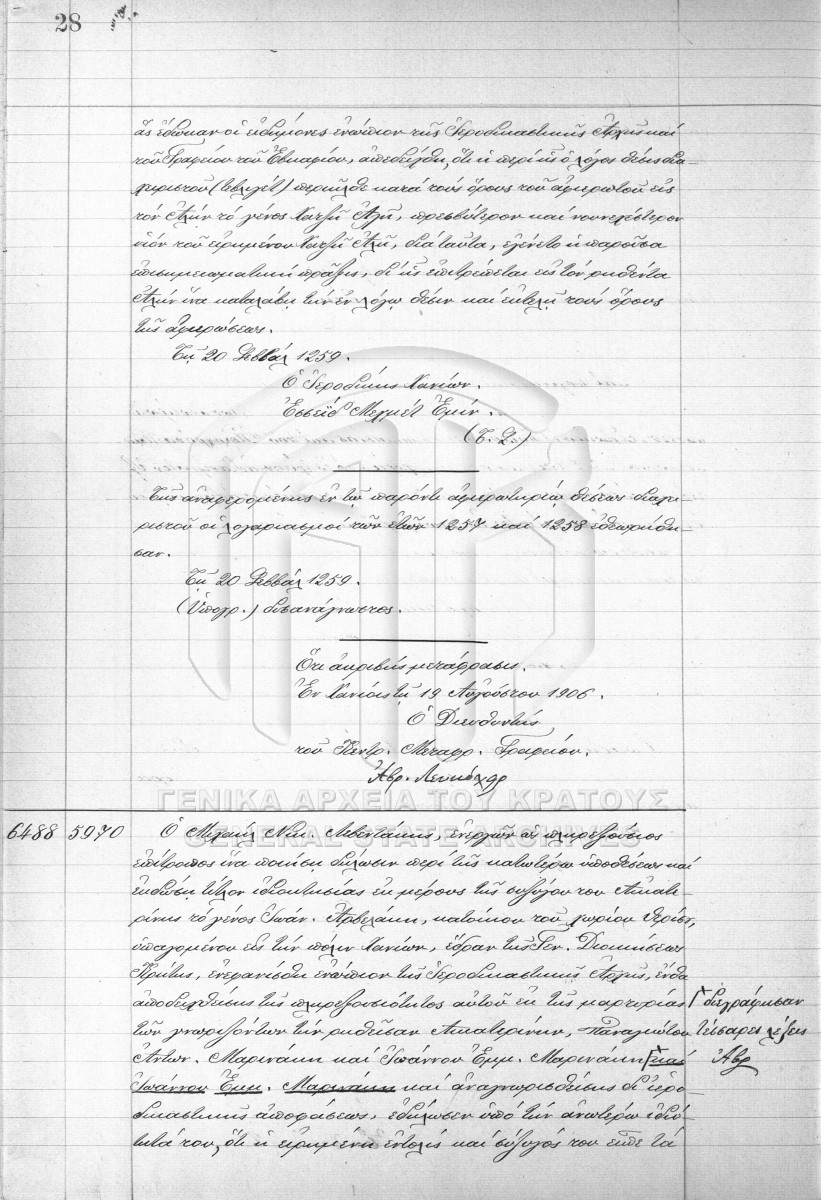 28
ἃς ἔδωκαν οἱ εἰδήμονες ἐνώπιον τῆς Ἱεροδικαστικῆς Ἀρχῆς καὶ
τοῦ Γραφείου τοῦ Ἐβκαφίου, ἀπεδείχθη, ὅτι ἡ περὶ ἧς ὁ λόγος θέσις δια-
χειριστοῦ (τεβλιγέτ) περιῆλθε κατὰ τοὺς ὅρους τοῦ ἀφιερωτοῦ εἰς
τὸν Ἀλῆν τὸ γένος Χατζῆ Ἀλῆ, πρεσβύτερον καὶ νουνεχέστερον
υἱὸν τοῦ εἰρημένου Χατζῆ Ἀλῆ, διὰ ταῦτα, ἐγένετο ἡ παροῦσα
ἐπισημειωματικὴ πρᾶξις, δι' ἧς ἐπιτρέπεται εἰς τὸν ῥηθέντα
Ἀλῆν ἵνα καταλάβῃ τὴν ἐν λόγῳ θέσιν καὶ ἐκτελῇ τοὺς ὅρους
τῆς ἀφιερώσεως.
Τῇ 20 Σεββάλ 1259.
Ὁ Ἱεροδίκης Χανίων.
Ἐσσεΐδ Μεχμὲτ Ἐμίν.
(Τ. Σ.)
Τῆς ἀναφερομένης ἐν τῷ παρόντι ἀφιερωτηρίῳ θέσεως διαχει-
ριστοῦ οἱ λογαριασμοὶ τῶν ἐτῶν 1257 καὶ 1258 ἐθεωρήθη-
σαν.
Τῇ 20 Σεββάλ 1259.
(Ὑπογρ.) δυσανάγνωστος.
Ὅτι ἀκριβὴς μετάφρασις.
Ἐν Χανίοις τῇ 19 Αὐγούστου 1906.
Ὁ Διευθυντὴς
τοῦ Κεντρ. Μεταφρ. Γραφείου.
Ἀβρ.
ΓΕΝΙΚΑ ΑΡΧΕΙΑ ΤΟΥ ΚΡΑΤΟΥΣ
GENERAL STATE ARCHIVES
6488 5970 Ὁ Μιχαὴλ Νικ. Λεβεντάκης ἐνεργῶν ὡς πληρεξούσιος
ἐπίτροπος ἵνα ποιήσῃ δήλωσιν περὶ τῆς κατωτέρω ὑποθέσεως καὶ
ἐκδώσῃ τίτλον ἰδιοκτησίας ἐκ μέρους τῆς συζύγου του Αἰκατε-
ρίνης τὸ γένος Ἰωάν. Ἀρβελάκη, κατοίκου τοῦ χωρίου Θερίσο,
ὑπαγομένου εἰς τὴν πόλιν Χανίων, ἕδραν τῆς Γεν. Διοικήσεως
Κρήτης, ἐνεφανίσθη ἐνώπιον τῆς Ἱεροδικαστικῆς Ἀρχῆς, ἔνθα
ἀποδειχθείσης τῆς πληρεξουσιότητος αὐτοῦ ἐκ τῆς μαρτυρίας
τῶν γνωριζόντων τὴν ῥηθεῖσαν Αἰκατερίνην, Παναγιώτου
Ἀντων. Μαρινάκη καὶ Ἰωάννου Ἐμμ. Μαρινάκη καὶ
Ἰωάννου Ἐμμ. Μαρινάκη καὶ ἀναγνωρισθείσης δι' ἱερο-
δικαστικῆς ἀποφάσεως, ἐδήλωσεν ὑπὸ τὴν ἀνωτέρω ἰδιό-
τητά του, ὅτι ἡ εἰρημένη ἐντολεὺς καὶ σύζυγός του εἶπε τὰ
διεγράφησαν
τέσσαρες λέξεις
Ἀβρ